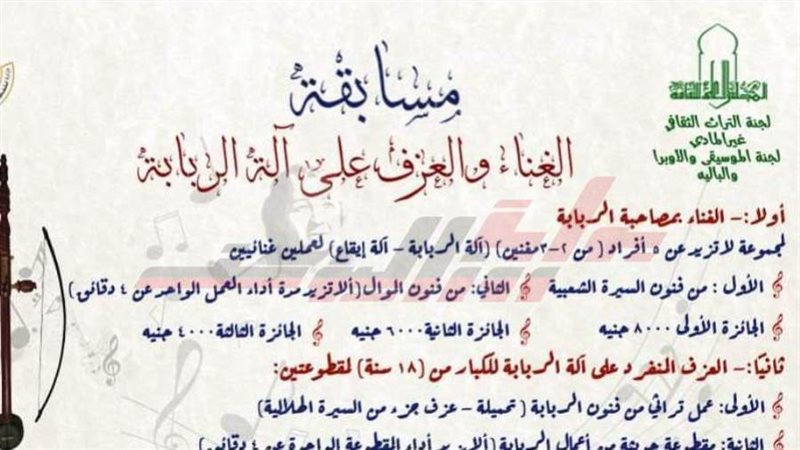 مسابقة
الغناء والعزف على آلة الربابة
المجلس الأعلى للثقافة
لجنة التراث الثقافي
غير المادي
لجنة الموسيقى والأوبرا
والباليه
أولا:- الغناء بمصاحبة الربابة
لمجموعة لاتزيد عن ٥ أفراد (من ٢-٣مغنين) (آلة الربابة - آلة إيقاع) لعملين غنائيين
الأول: من فنون السيرة الشعبية الثاني: من فنون الموال (ألاتزيد مدة أداء العمل الواحد عن ٤ دقائق)
الجائزة الأولى ٨٠٠٠ جنيه الجائزة الثانية ٦٠٠٠ جنيه الجائزة الثالثة ٤٠٠٠ جنيه
ثانيًا:- العزف المنفرد على آلة الربابة للكبار من (١٨ سنة) لمقطوعتين:
الأولى: عمل تراثي من فنون الربابة (تحميلة - عزف جزء من السيرة الهلالية)
الثانية: مقطوعة حديثة من أعمال الربابة (ألا تزيد أداء المقطوعة الواحدة عن ٤ دقائق)